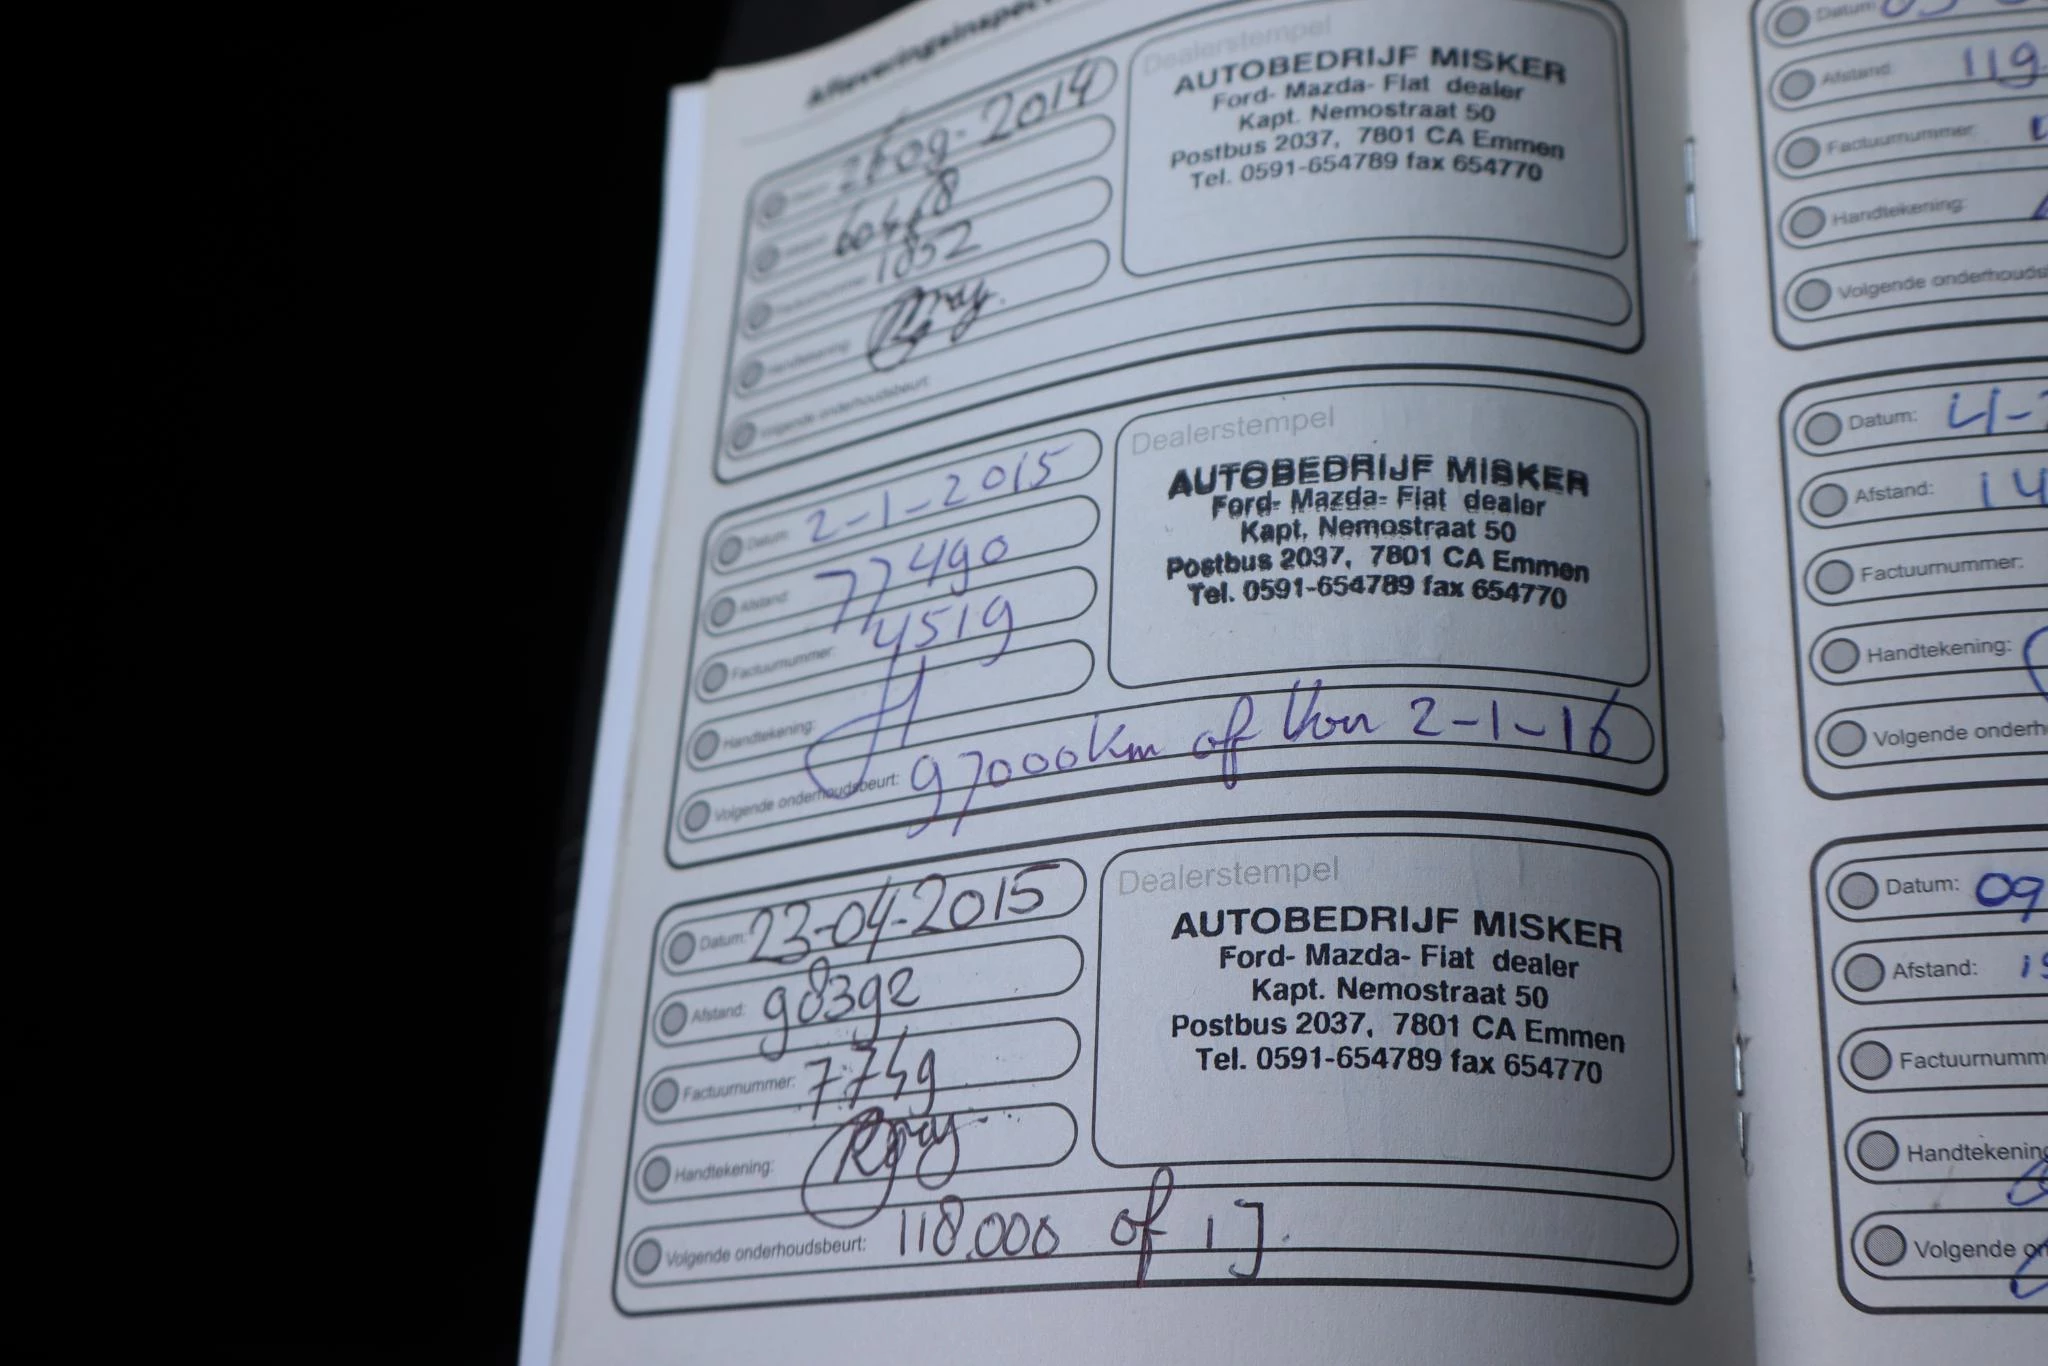 Afleveringsinspec
Dealerstempel
AUTOBEDRIJF MISKER
Ford- Mazda- Fiat dealer
Kapt. Nemostraat 50
Postbus 2037, 7801 CA Emmen
Tel. 0591-654789 fax 654770
1852
Handtekening:
Volgende onderhoudsbeurt:
Datum: 2-1-2015
Afstand: 77490
Factuurnummer: 4519
Handtekening:
Volgende onderhoudsbeurt: 97000km of Voor 2-1-16
Dealerstempel
AUTOBEDRIJF MISKER
Ford- Mazda- Fiat dealer
Kapt. Nemostraat 50
Postbus 2037, 7801 CA Emmen
Tel. 0591-654789 fax 654770
Datum: 23-04-2015
Afstand: 98392
Factuurnummer:
Handtekening:
Volgende onderhoudsbeurt: 118.000 of 1 J.
Dealerstempel
AUTOBEDRIJF MISKER
Ford- Mazda- Fiat dealer
Kapt. Nemostraat 50
Postbus 2037, 7801 CA Emmen
Tel. 0591-654789 fax 654770
Datum:
Afstand: 119
Factuurnummer:
Handtekening:
Volgende onderhouds
Datum: 4-
Afstand: 14
Factuurnummer:
Handtekening:
Volgende onderh
Datum: 09
Afstand:
Factuurnumm
Handtekening
Volgende on